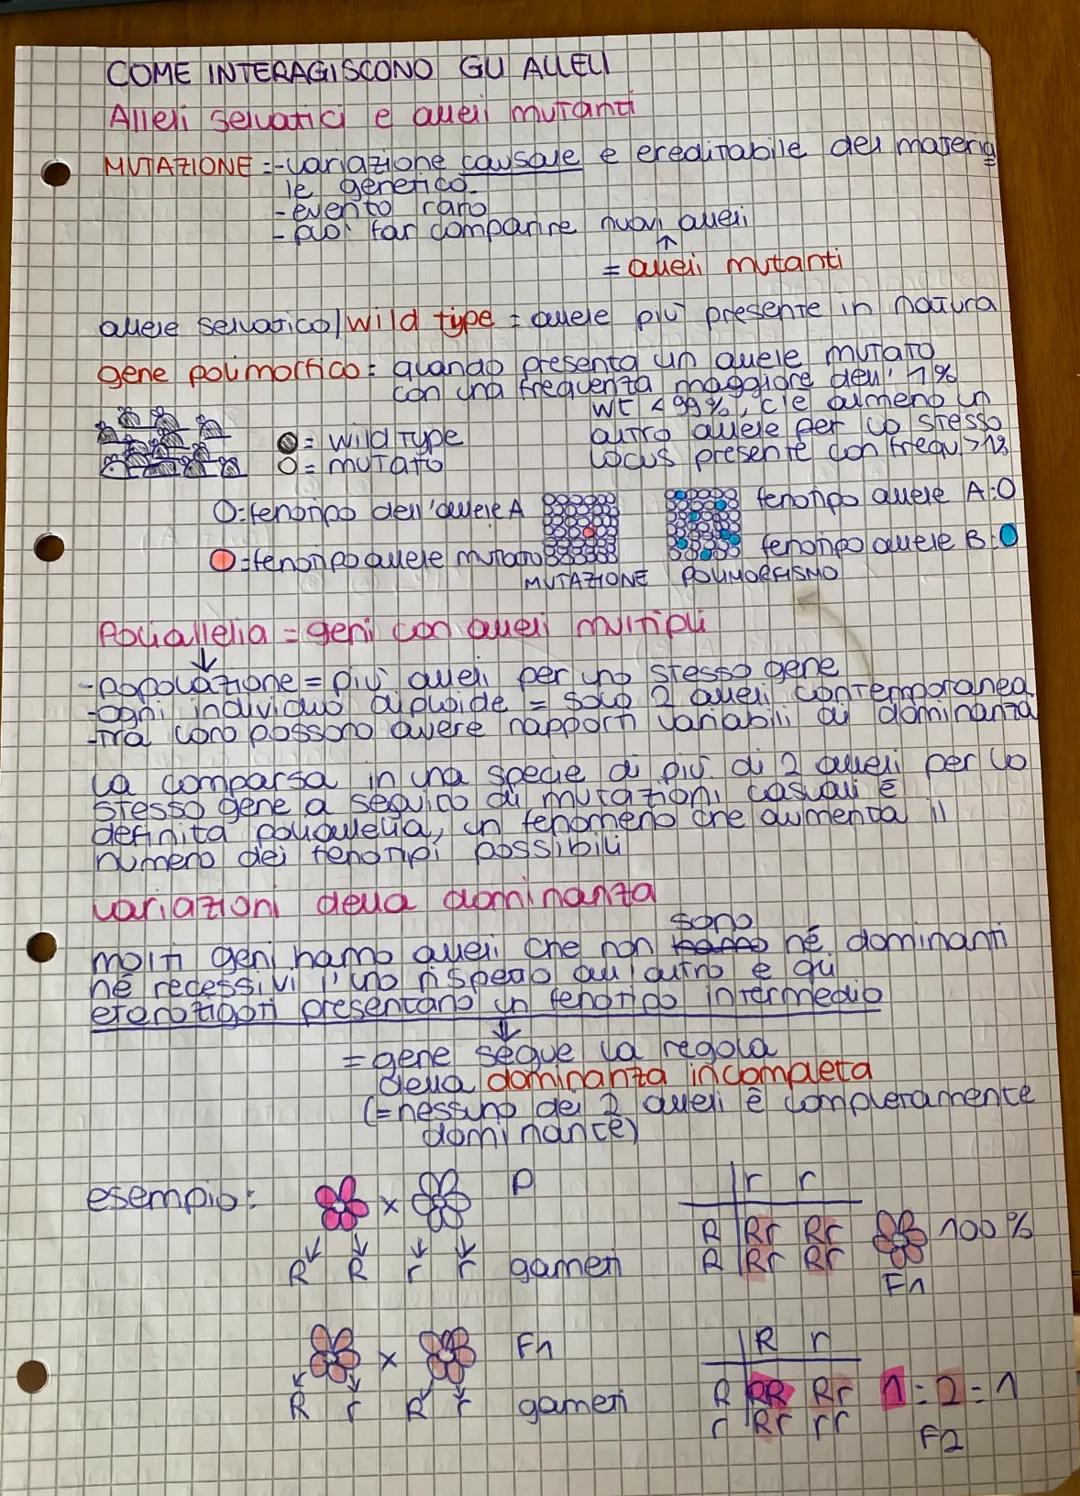 COME INTERAGISCONO GLI ALLELI
Alleli selvatici e alleli mutanti
MUTAZIONE =-variazione causale e ereditabile del materia
le genetico.
- evento raro
- può far comparire nuovi alleli
↑
= alleli mutanti
allele selvatico/wild type = allele più presente in natura
gene polimorfico: quando presenta un allele mutato
con una frequenza maggiore dell'1%
WT <99%, c'è almeno un
altro allele per lo stesso
locus presente con frequ >1%
O = wild type
O = mutato
O=fenotipo dell'allele A
O=fenotipo allele mutato
fenotipo allele A:O
fenotipo allele B:O
MUTAZIONE POLIMORFISMO
Poliallelia = geni con alleli multipli
↓
-popolazione = più alleli per uno stesso gene
-ogni individuo diploide = solo 2 alleli contemporanea
-Tra loro possono avere rapporti variabili di dominanza
La comparsa in una specie di più di 2 alleli per lo
stesso gene a seguito di mutazioni casuali è
definita poliallelia, un fenomeno che aumenta il
numero dei fenotipi possibili
variazioni della dominanza
sono
molti geni hanno alleli che non hanno né dominanti
né recessivi l'uno rispetto all'altro e gli
eterozigoti presentano un fenotipo intermedio
↓
= gene segue la regola
della dominanza incompleta
(=nessuno dei 2 alleli è completamente
dominante)
esempio: x P
R R r r gameti
r r
R Rr Rr 100%
R Rr Rr
F1
x F1
R r R r gameti
R r
R RR Rr 1:2=1
r Rr rr
F2